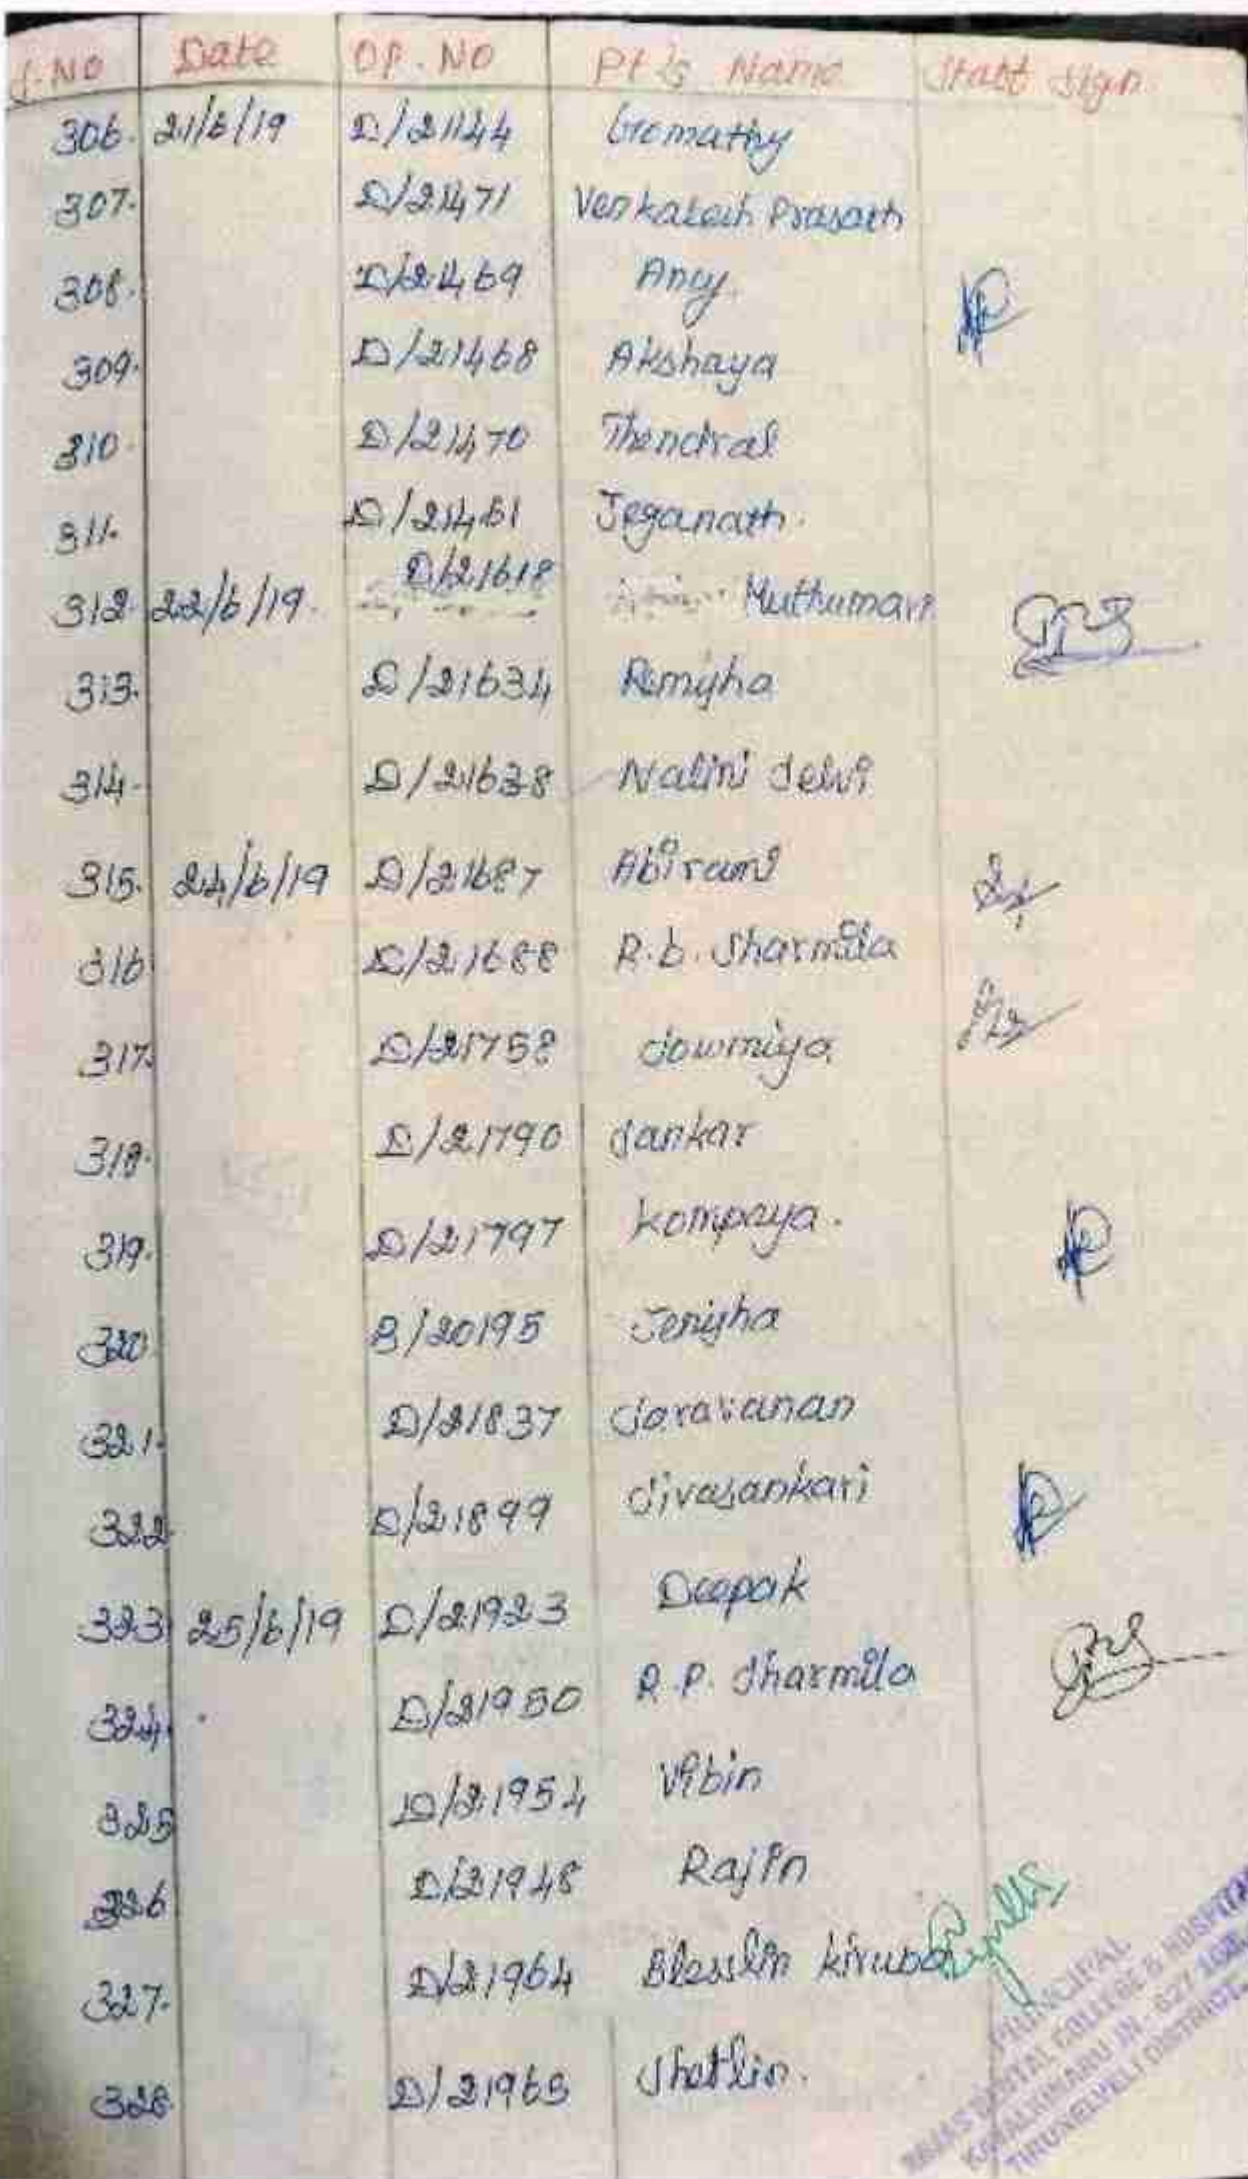 S.NO Date OP.NO Pt's Name Staff Sign
306. 21/6/19 D/21144 Gomathy
307. D/21471 Venkatesh Prasath
308. D/21469 Ancy
309. D/21468 Akshaya
310. D/21470 Thendral
311. D/21461 Jeganath.
312. 22/6/19. D/21618 Muthumari
313. D/21634 Remisha
314. D/21638 Nalini Selvi
315. 24/6/19 D/21687 Abirami
316 D/21688 R.b. Sharmila
317. D/21758 Sowmiya
318. D/21790 Sankar
319. D/21797 Kompaya.
320. B/20195 Jenisha
321. D/21837 Saravanan
322. D/21899 Sivasankari
323 25/6/19 D/21923 Deepak
324. D/21950 R.P. Sharmila
325 D/21954 Vibin
326 D/21948 Rajin
327. D/21964 Blesslin kiruba
328. D/21965 Shetlin.
PRINCIPAL
DENTAL COLLEGE & HOSPITAL
KAVALKINARU JN - 627 105.
TIRUNELVELI DISTRICT.